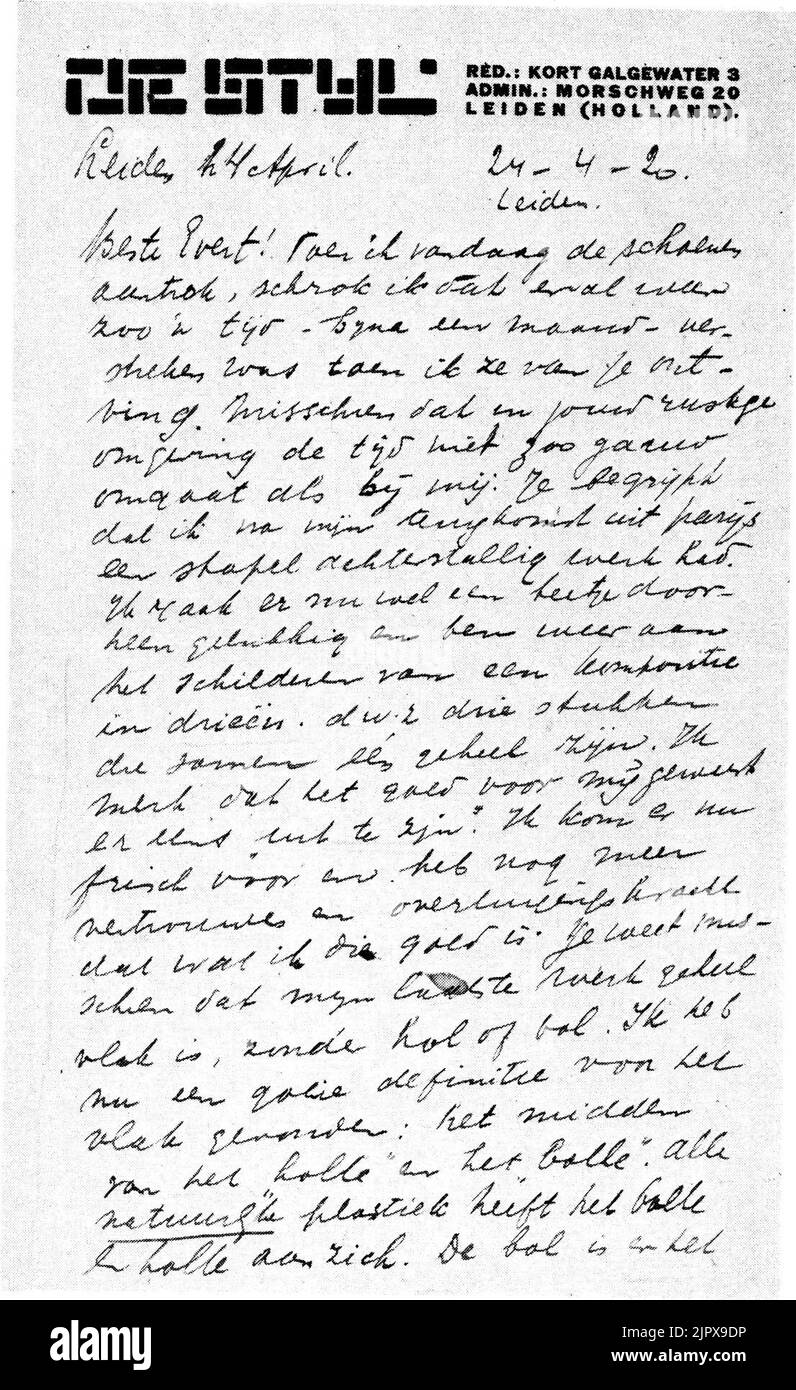 DE STYL
RED.: KORT GALGEWATER 3
ADMIN.: MORSCHWEG 20
LEIDEN (HOLLAND).
Leiden 24 April.
24-4-20.
Leiden.
Beste Evert! Toen ik vandaag de schoenen
aantrok, schrok ik dat er al weer
zoo'n tijd - byna een maand - ver-
streken was toen ik ze van je ont-
ving. Misschien dat in jouw rustige
omgeving de tijd niet zoo gauw
omgaat als bij mij. Je begrijpt
dat ik na mijn terugkomst uit parijs
een stapel achterstallig werk had.
Ik raak er nu wel een beetje door-
heen gelukkig en ben weer aan
het schilderen van een kompositie
in drieën. d.w.z drie stukken
die samen één geheel zijn. Ik
merk dat het goed voor mij geweest
er eens uit te zijn. Ik kom er nu
frisch voor en heb nog meer
vertrouwen en overtuigingskracht
dat wat ik die goed is. Je weet mis-
schien dat mijn laatste werk geheel
vlak is, zonder hol of bol. Ik heb
nu een goeie definitie voor het
vlak gevonden: het midden
van het holle "en het bolle". Alle
natuurlijke plastiek heeft het bolle
en holle aan zich. De bol is en het
alamy
Image ID: 2JPX9DP
www.alamy.com